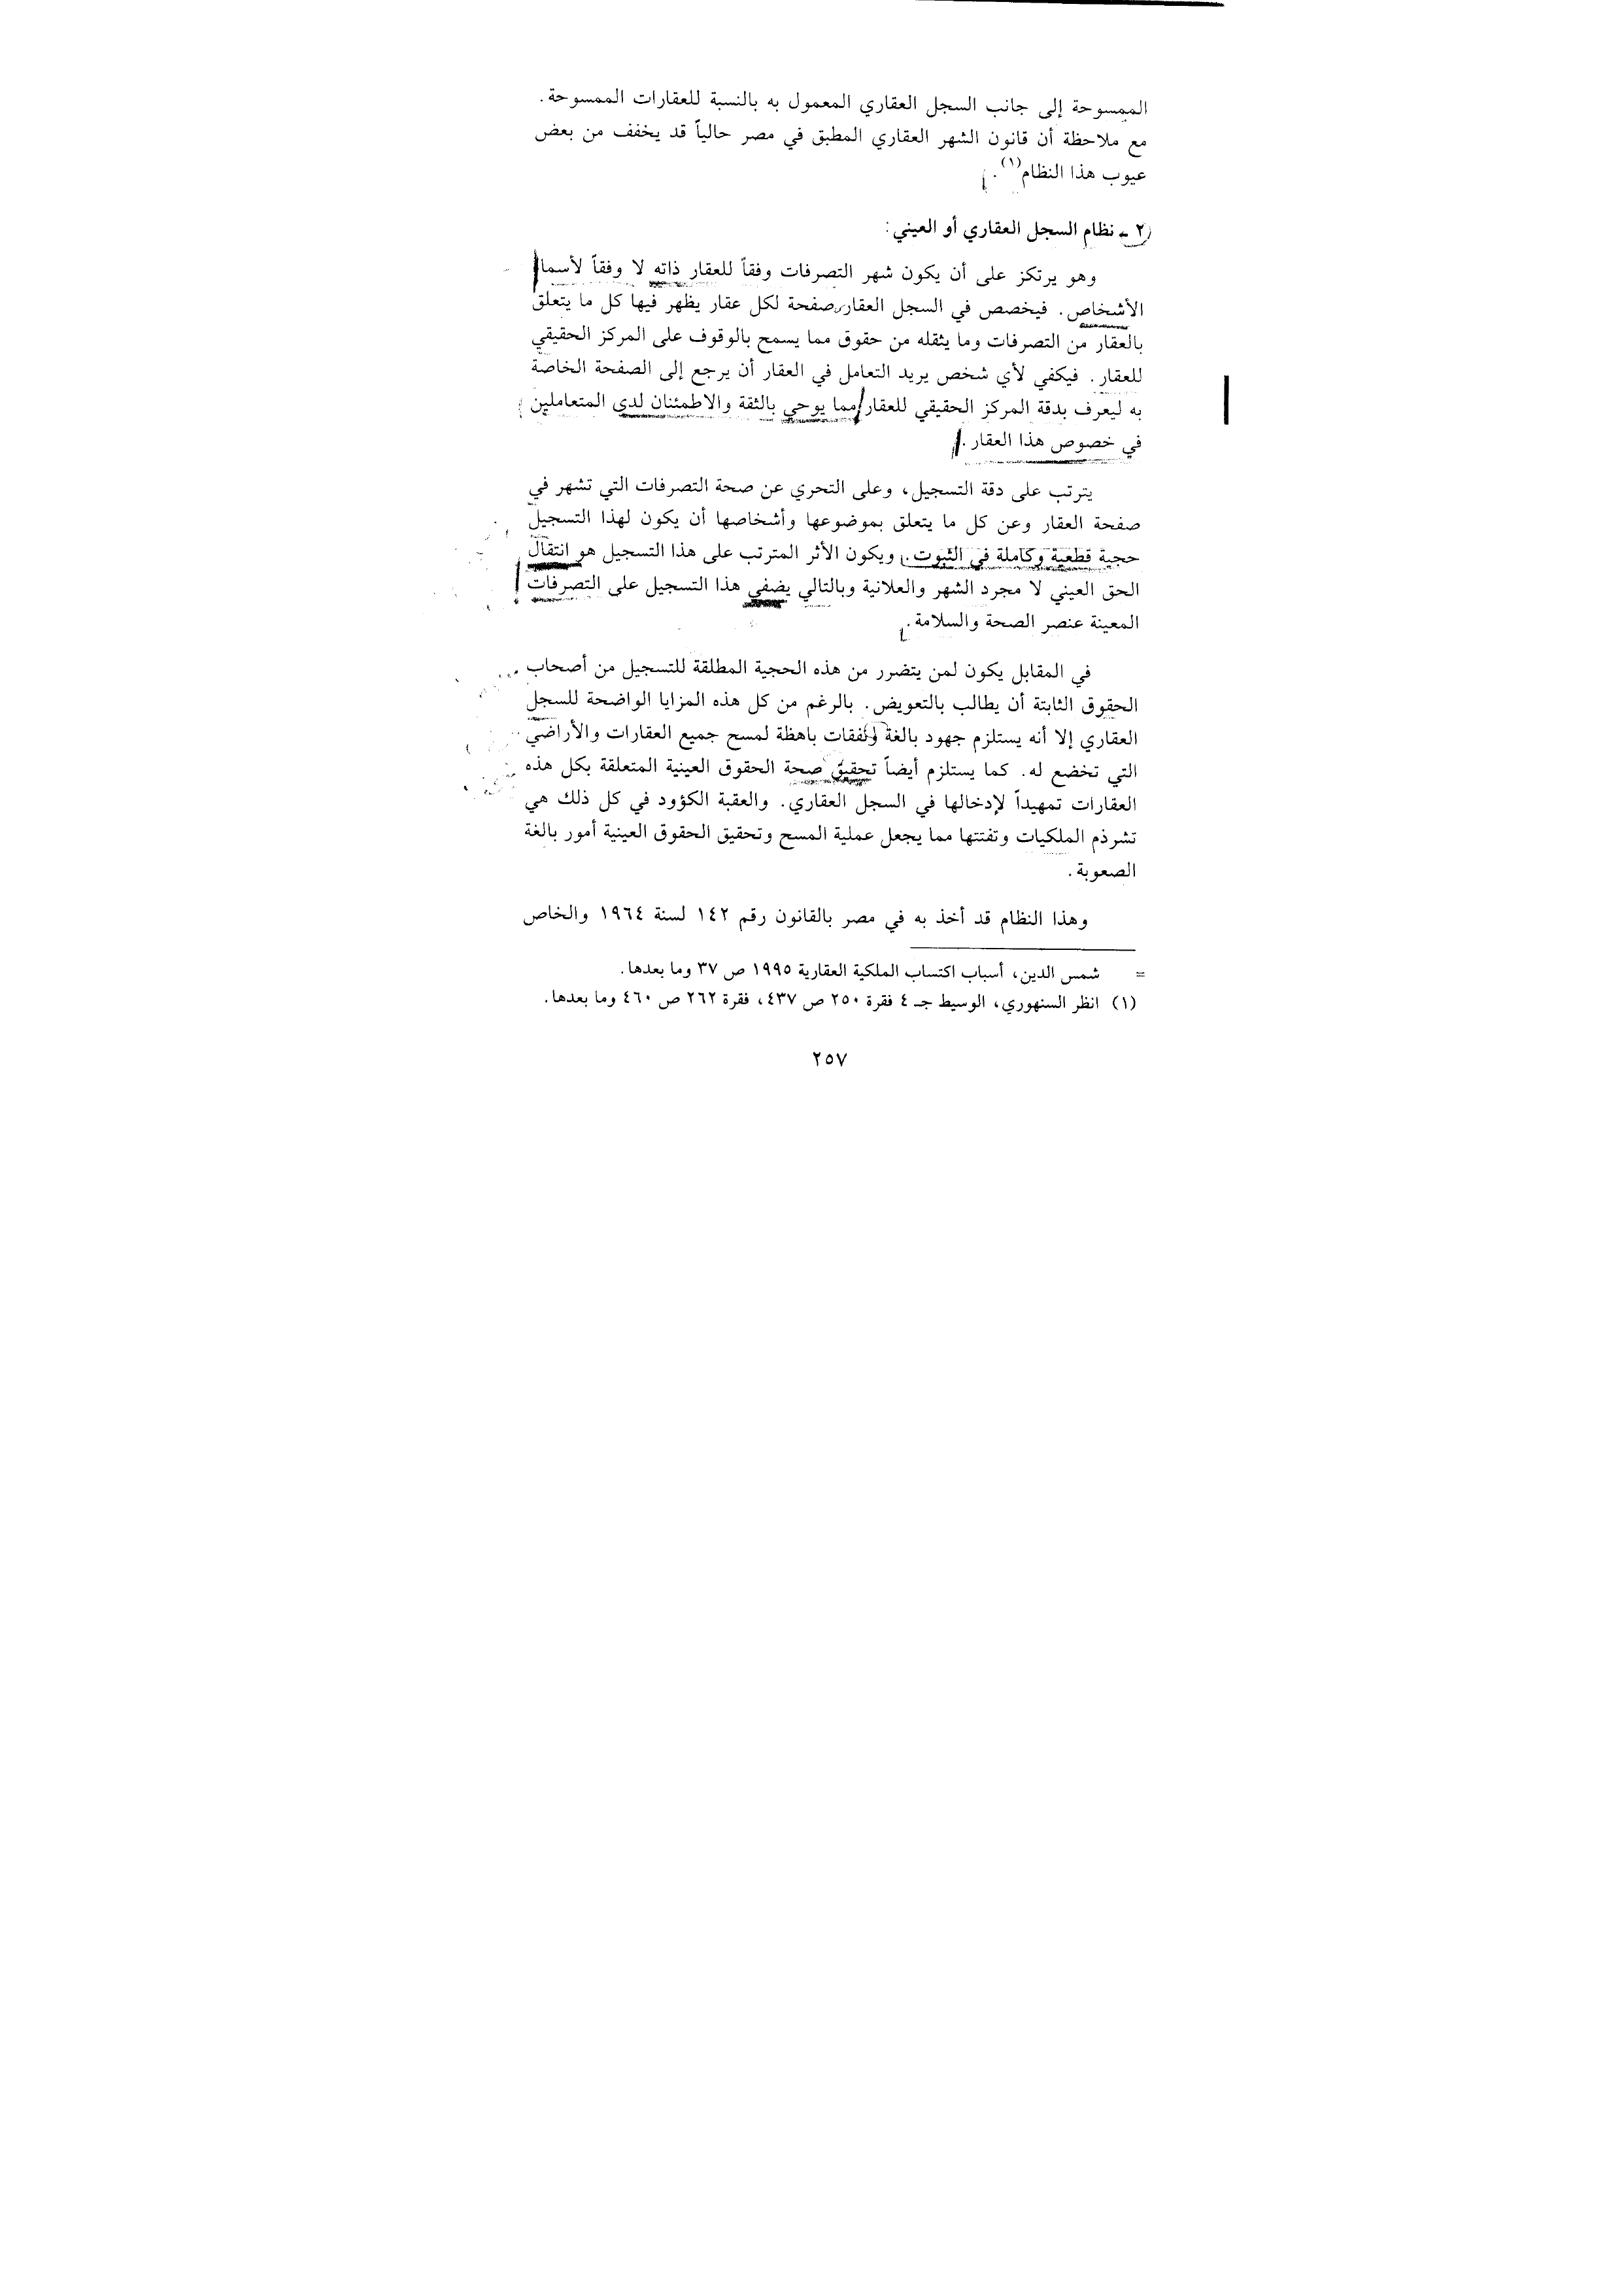 الممسوحة إلى جانب السجل العقاري المعمول به بالنسبة للعقارات الممسوحة.
مع ملاحظة أن قانون الشهر العقاري المطبق في مصر حالياً قد يخفف من بعض
عيوب هذا النظام(١).
٢ - نظام السجل العقاري أو العيني:
وهو يرتكز على أن يكون شهر التصرفات وفقاً للعقار ذاته لا وفقاً لأسماء
الأشخاص. فيخصص في السجل العقاري صفحة لكل عقار يظهر فيها كل ما يتعلق
بالعقار من التصرفات وما يثقله من حقوق مما يسمح بالوقوف على المركز الحقيقي
للعقار. فيكفي لأي شخص يريد التعامل في العقار أن يرجع إلى الصفحة الخاصة
به ليعرف بدقة المركز الحقيقي للعقار مما يوحي بالثقة والاطمئنان لدى المتعاملين
في خصوص هذا العقار.
يترتب على دقة التسجيل، وعلى التحري عن صحة التصرفات التي تشهر في
صفحة العقار وعن كل ما يتعلق بموضوعها وأشخاصها أن يكون لهذا التسجيل
حجية قطعية وكاملة في الثبوت. ويكون الأثر المترتب على هذا التسجيل هو انتقال
الحق العيني لا مجرد الشهر والعلانية وبالتالي يضفي هذا التسجيل على التصرفات
المعينة عنصر الصحة والسلامة.
في المقابل يكون لمن يتضرر من هذه الحجية المطلقة للتسجيل من أصحاب
الحقوق الثابتة أن يطالب بالتعويض. بالرغم من كل هذه المزايا الواضحة للسجل
العقاري إلا أنه يستلزم جهود بالغة ونفقات باهظة لمسح جميع العقارات والأراضي
التي تخضع له. كما يستلزم أيضاً تحقيق صحة الحقوق العينية المتعلقة بكل هذه
العقارات تمهيداً لإدخالها في السجل العقاري. والعقبة الكؤود في كل ذلك هي
تشرذم الملكيات وتفتتها مما يجعل عملية المسح وتحقيق الحقوق العينية أمور بالغة
الصعوبة.
وهذا النظام قد أخذ به في مصر بالقانون رقم ١٤٢ لسنة ١٩٦٤ والخاص
= شمس الدين، أسباب اكتساب الملكية العقارية ١٩٩٥ ص ٣٧ وما بعدها.
(١) انظر السنهوري، الوسيط جـ ٤ فقرة ٢٥٠ ص ٤٣٧، فقرة ٢٦٢ ص ٤٦٠ وما بعدها.
٢٥٧